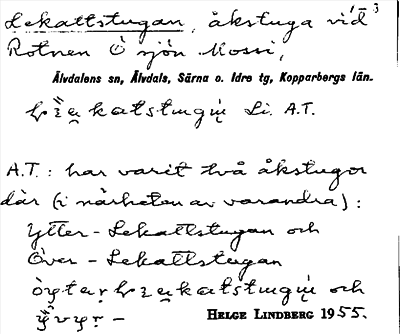 Lekattstugan, åkstuga vid
Rotnen Ö sjön Mossi,
Älvdalens sn, Älvdals, Särna o. Idre tg, Kopparbergs län.
Li. A.T.
A.T.: har varit två åkstugor
där (i närheten av varandra):
Ytter-Lekattstugan och
Över-Lekattstugan
och
HELGE LINDBERG 1955.